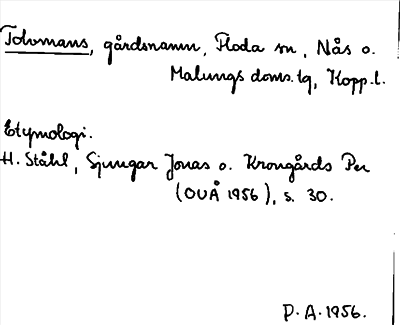 Tolvmans, gårdsnamn, Floda sn, Nås o.
Malungs doms.lg, Kopp.l.
Etymologi.
H. Ståhl, Sjungar Jonas o. Krongårds Per
(OUÅ 1956), s. 30.
P.A. 1956.